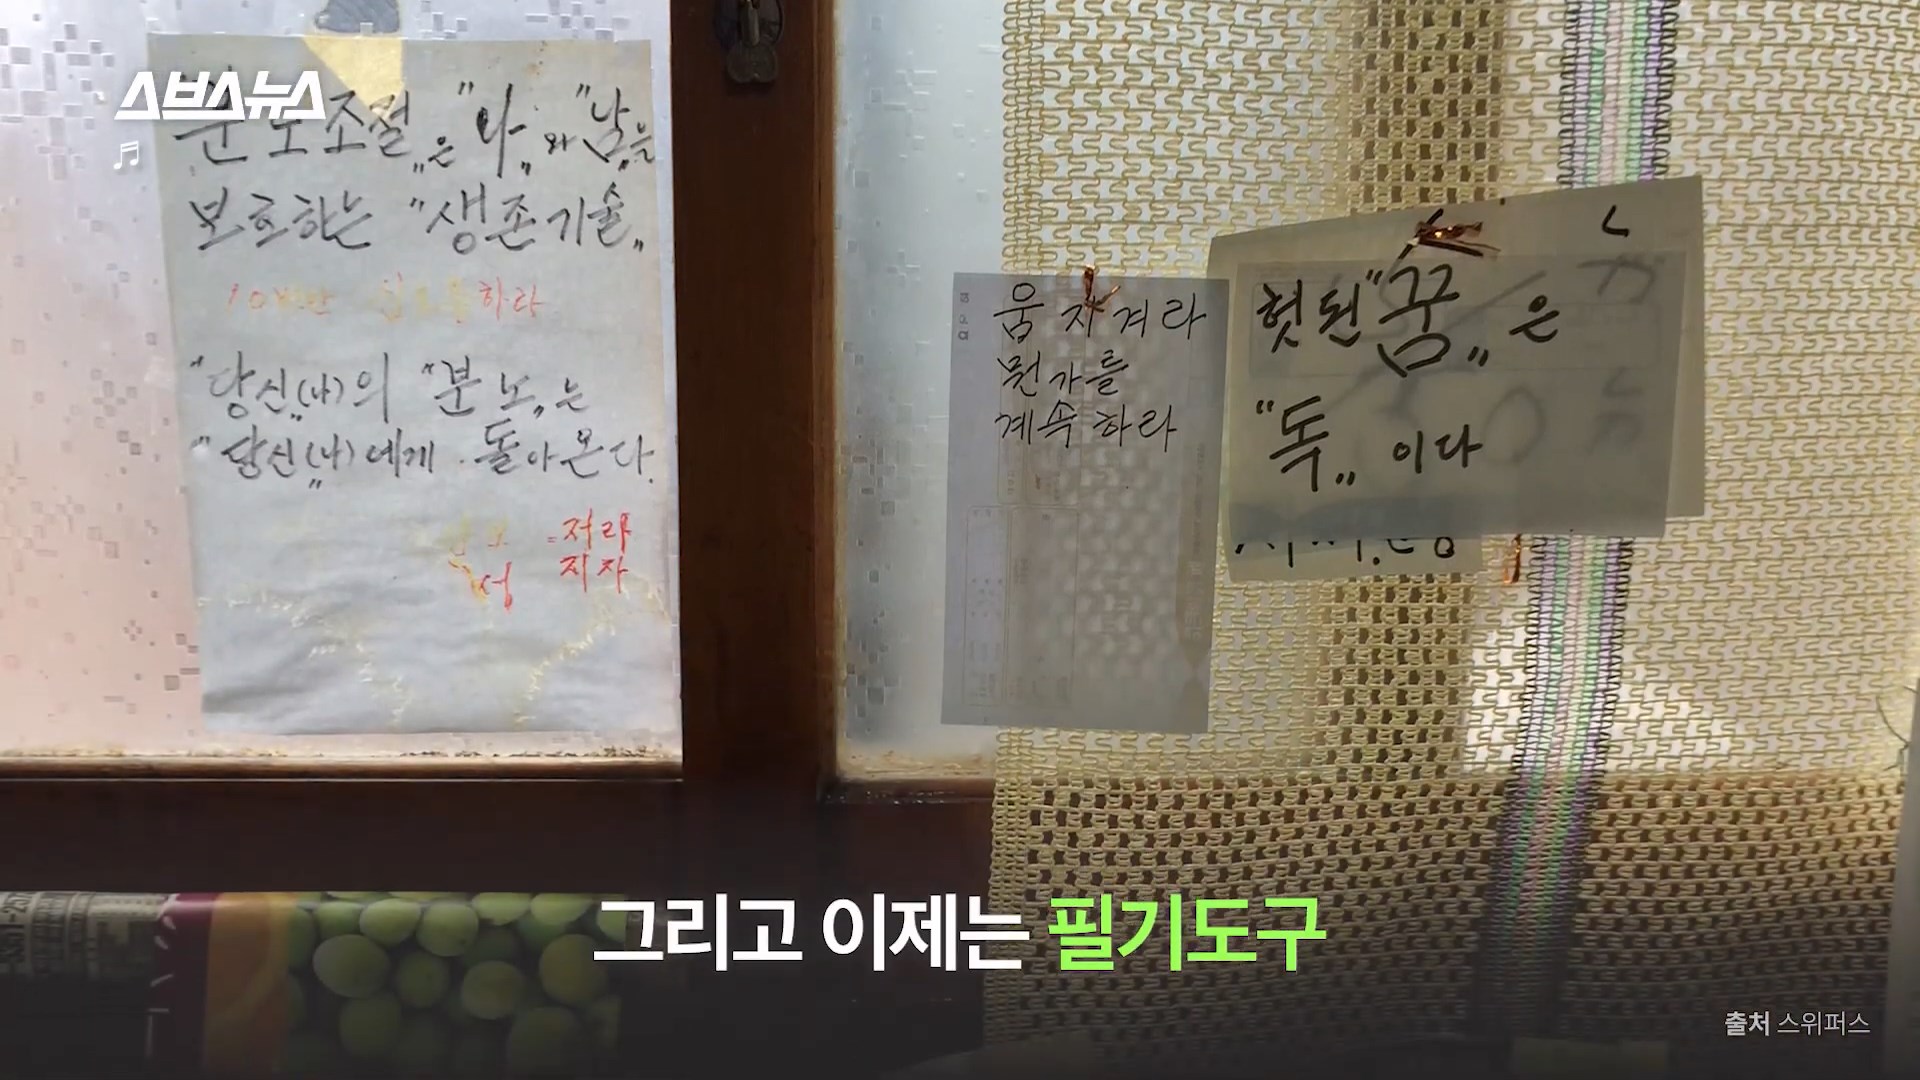 스브스뉴스
분노조절„은 "나„와 "남„을
보호하는 "생존기술„
10번만 심호흡하라
"당신„(나)의 "분노„는
"당신„(나)에게 돌아온다.
저라
지자
움지겨라
뭔가를
계속하라
헛된 "꿈„은
"독„이다
그리고 이제는 필기도구
출처 스위퍼스